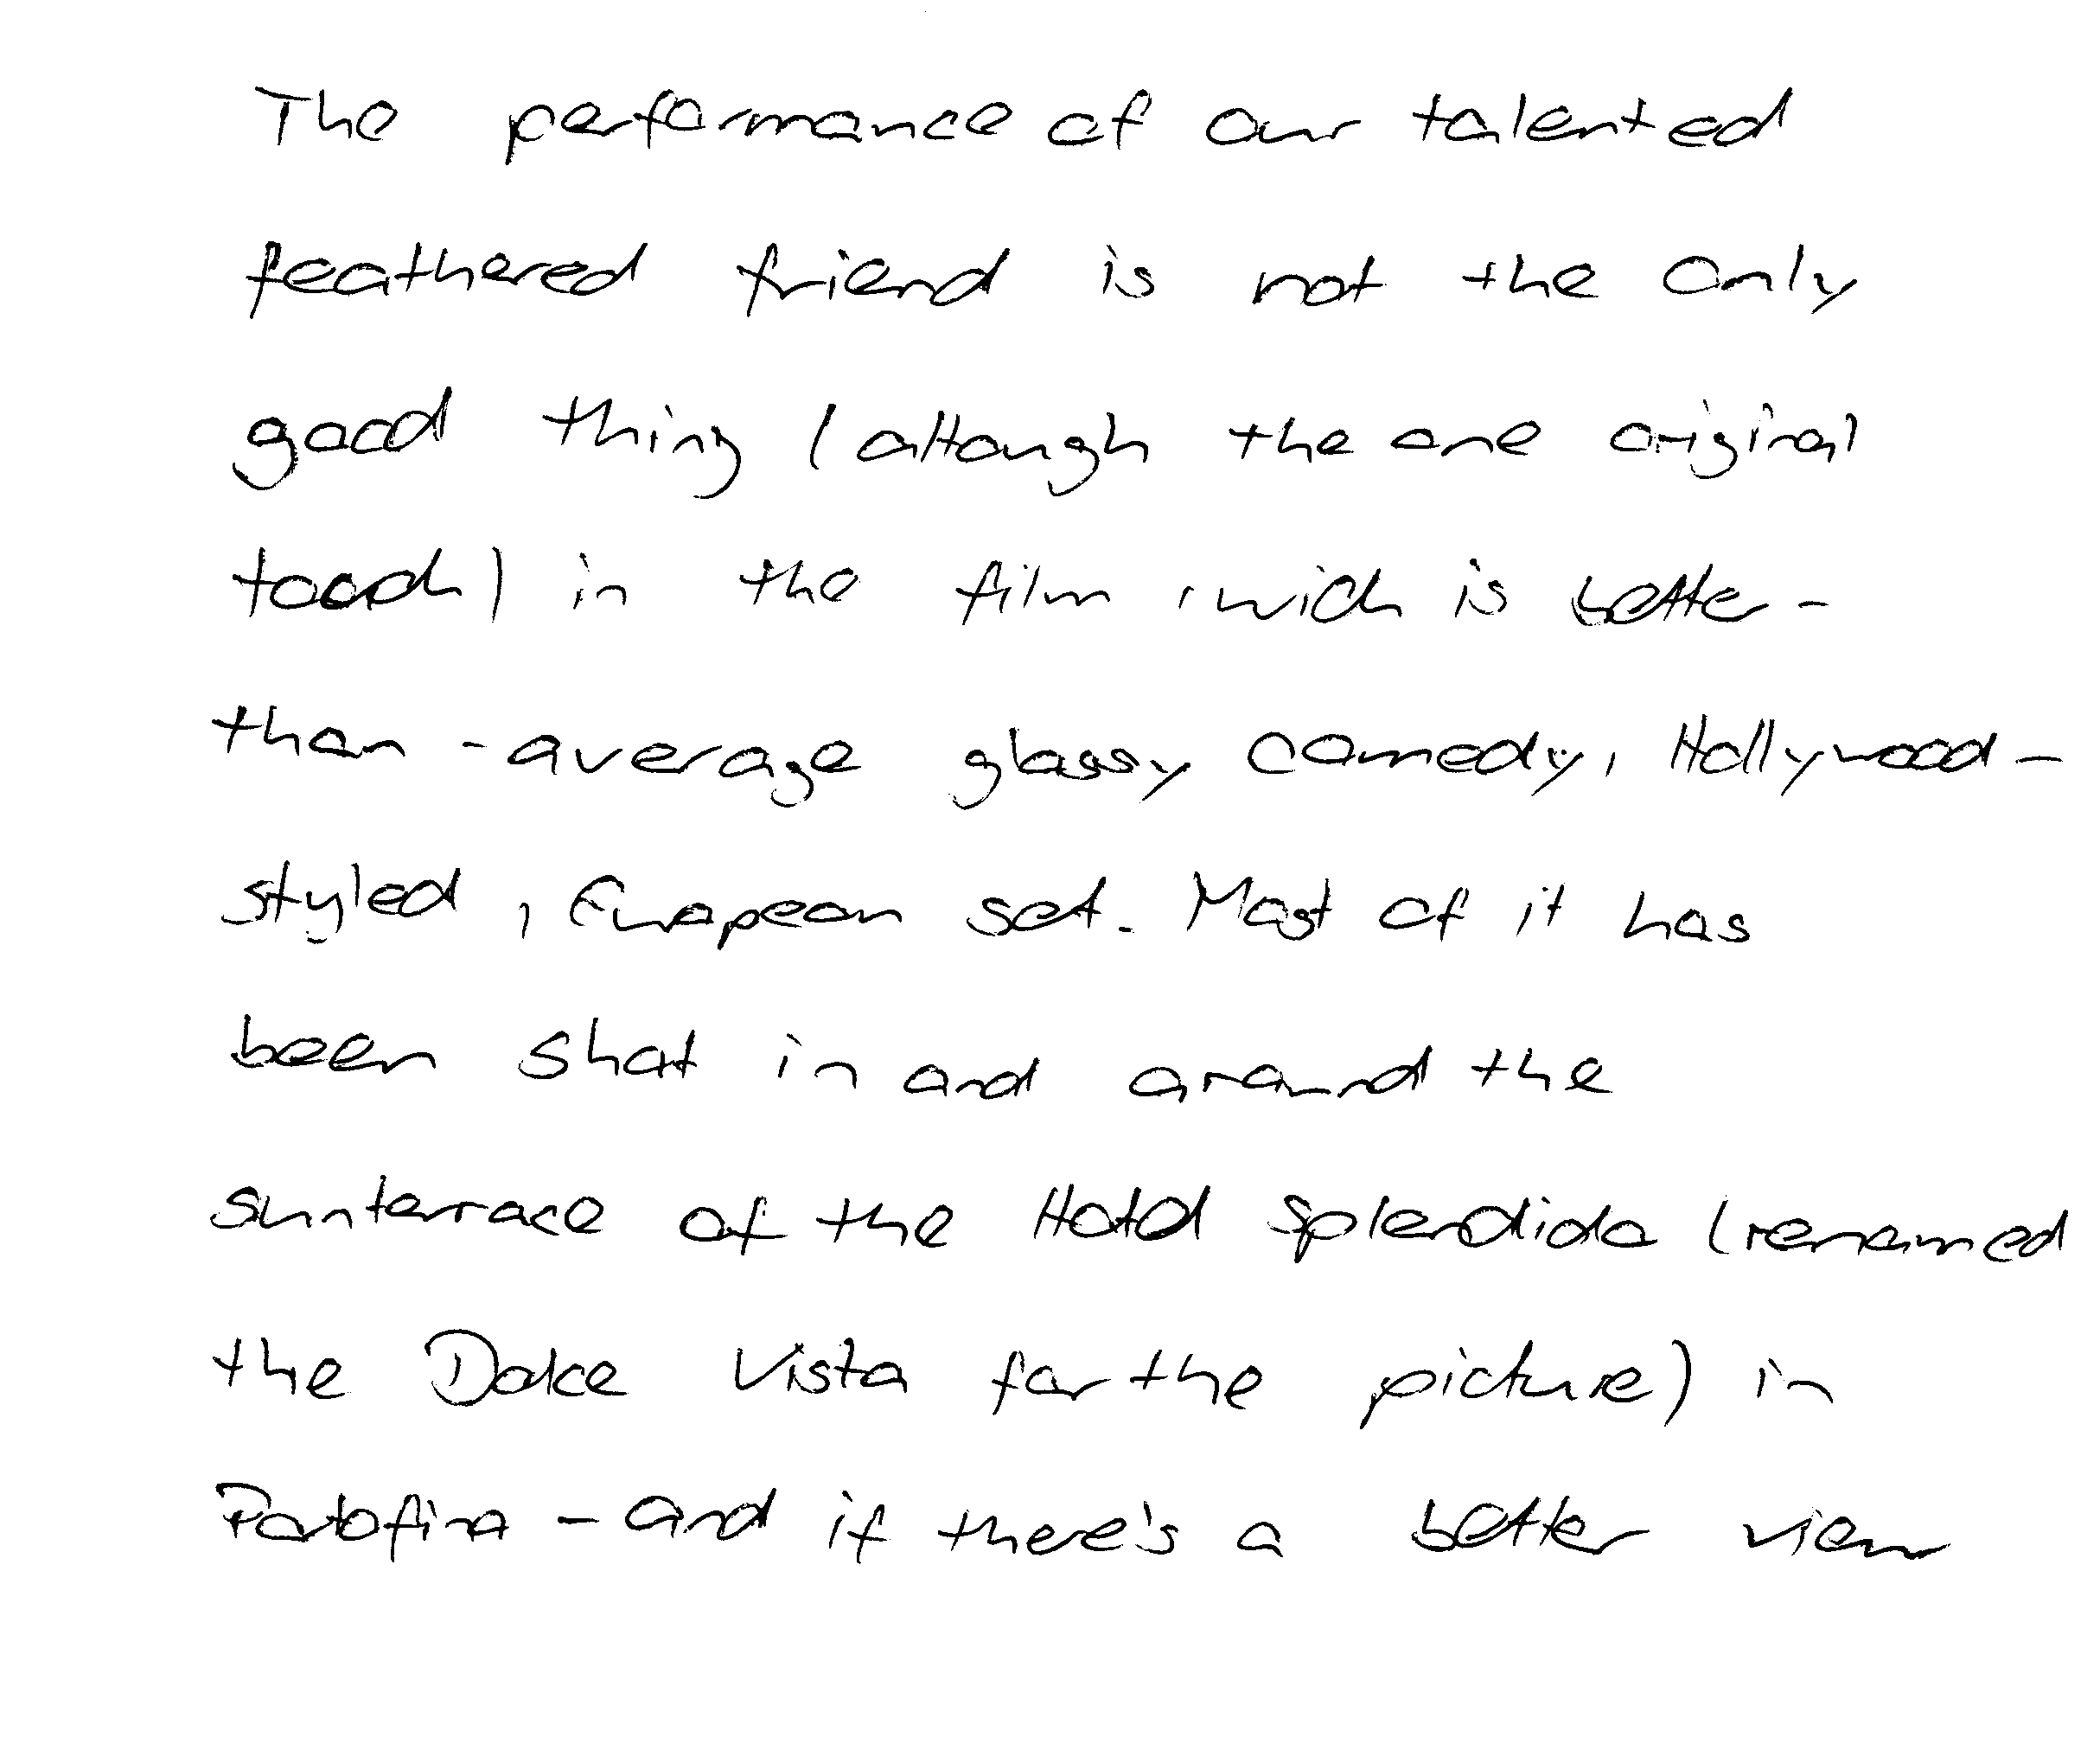 The performance of our talented
feathered friend is not the only
good thing (altough the one original
toouch) in the film, wich is better-
than-average glossy comedy, Hollywood-
styled, European set. Most of it has
been shot in and around the
sunterrace of the Hotel Splendido (renamed
the Dolce Vista for the picture) in
Portofino - and if there's a better view